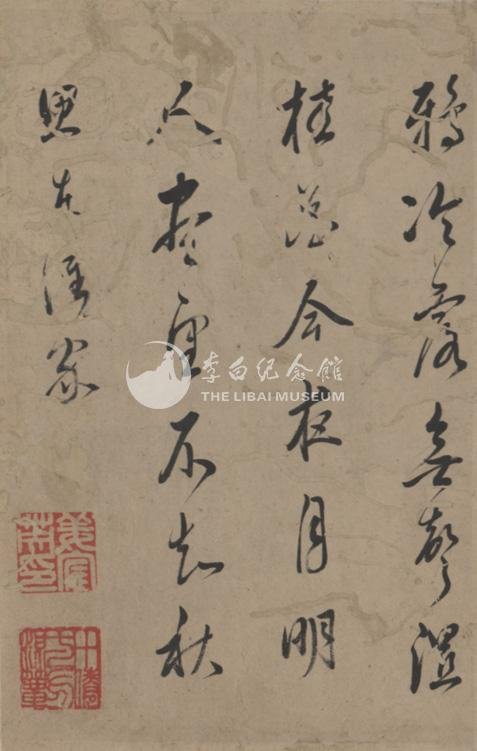 鴉冷露無聲溼
桂花今夜月明
人盡望不知秋
思在誰家
姜宸英印
李白纪念館
THE LIBAI MUSEUM